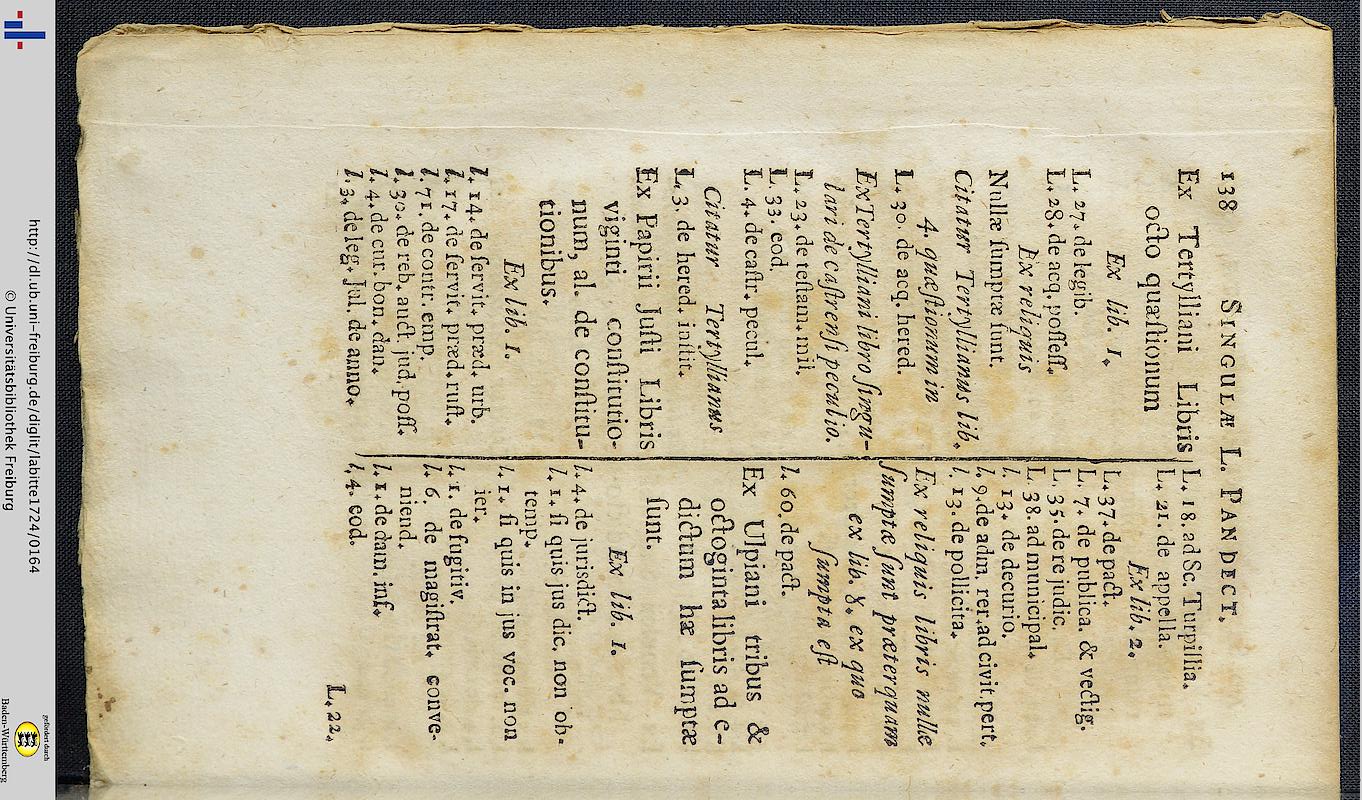 138 SINGULÆ L. PANDECT.
Ex Tertylliani Libris
octo quæſtionum
Ex lib. 1.
L. 27. de legib.
L. 28. de acq. poſſeſſ.
Ex reliquis
Nullæ ſumptæ ſunt.
Citatur Tertyllianus lib.
4. quæſtionum in
L. 30. de acq. hered.
Ex Tertylliani libro ſingu-
lari de caſtrenſi peculio.
L. 23. de teſtam. mil.
L. 33. eod.
L. 4. de caſtr. pecul.
Citatur Tertyllianus
L. 3. de hered. inſtit.
Ex Papirii Juſti Libris
viginti conſtitutio-
num, al. de conſtitu-
tionibus.
Ex lib. 1.
l. 14. de ſervit. præd. urb.
l. 17. de ſervit. præd. ruſt.
l. 71. de contr. emp.
l. 30. de reb. auct. jud. poſſ.
l. 4. de cur. bon. dan.
l. 3. de leg. Jul. de anno.
L. 18. ad Sc. Turpillia.
L. 21. de appella.
Ex lib. 2.
L. 37. de pact.
L. 7. de publica. & vectig.
L. 35. de re judic.
L. 38. ad municipal.
l. 13. de decurio.
l. 9. de adm. rer. ad civit. pert.
l. 13. de pollicita.
Ex reliquis libris nullæ
ſumptæ ſunt præterquam
ex lib. 8. ex quo
ſumpta eſt
l. 60. de pact.
Ex Ulpiani tribus &
octoginta libris ad e-
dictum hæ ſumptæ
ſunt.
Ex lib. 1.
l. 4. de jurisdict.
l. 1. ſi quis jus dic. non ob-
temp.
l. 1. ſi quis in jus voc. non
ier.
l. 1. de fugitiv.
l. 6. de magiſtrat. conve-
niend.
l. 1. de dam. inf.
l. 4. eod.
L. 22.
http://dl.ub.uni-freiburg.de/diglit/labitte1724/0164
© Universitätsbibliothek Freiburg
gefördert durch
Baden-Württemberg